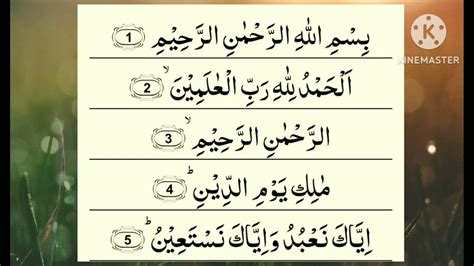 بِسْمِ اللّٰهِ الرَّحْمٰنِ الرَّحِيْمِ 1
اَلْحَمْدُ لِلّٰهِ رَبِّ الْعٰلَمِيْنَۙ 2
الرَّحْمٰنِ الرَّحِيْمِۙ 3
مٰلِكِ يَوْمِ الدِّيْنِؕ 4
اِيَّاكَ نَعْبُدُ وَاِيَّاكَ نَسْتَعِيْنُؕ 5
KINEMASTER